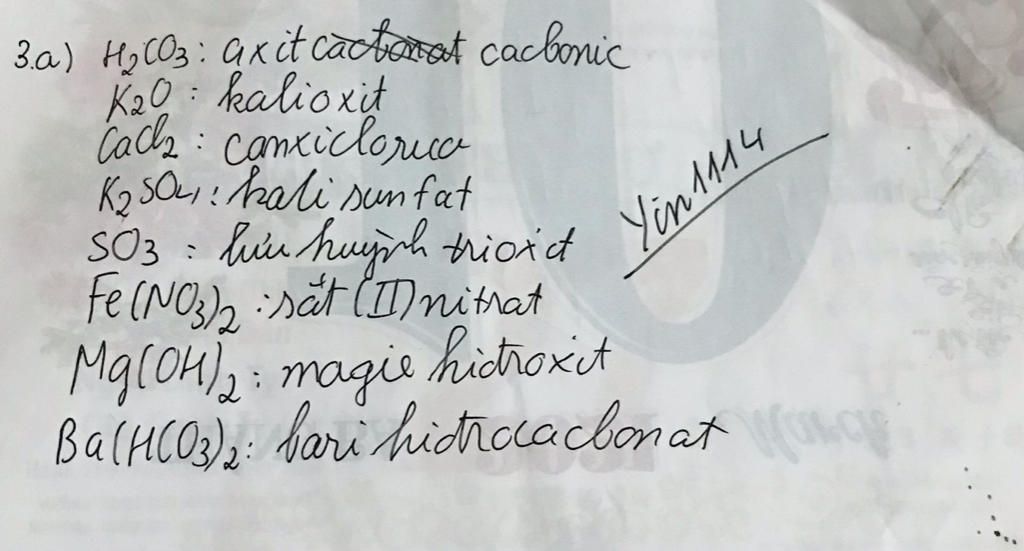 3.a) H₂CO₃ : axit cacbonic
K₂O : kalioxit
CaCl₂ : canxiclorua
K₂SO₄ : kali sunfat
SO₃ : lưu huỳnh trioxit
Fe(NO₃)₂ : sắt (II) nitrat
Mg(OH)₂ : magie hidroxit
Ba(HCO₃)₂ : bari hidrocacbonat
Yin1114
10
March